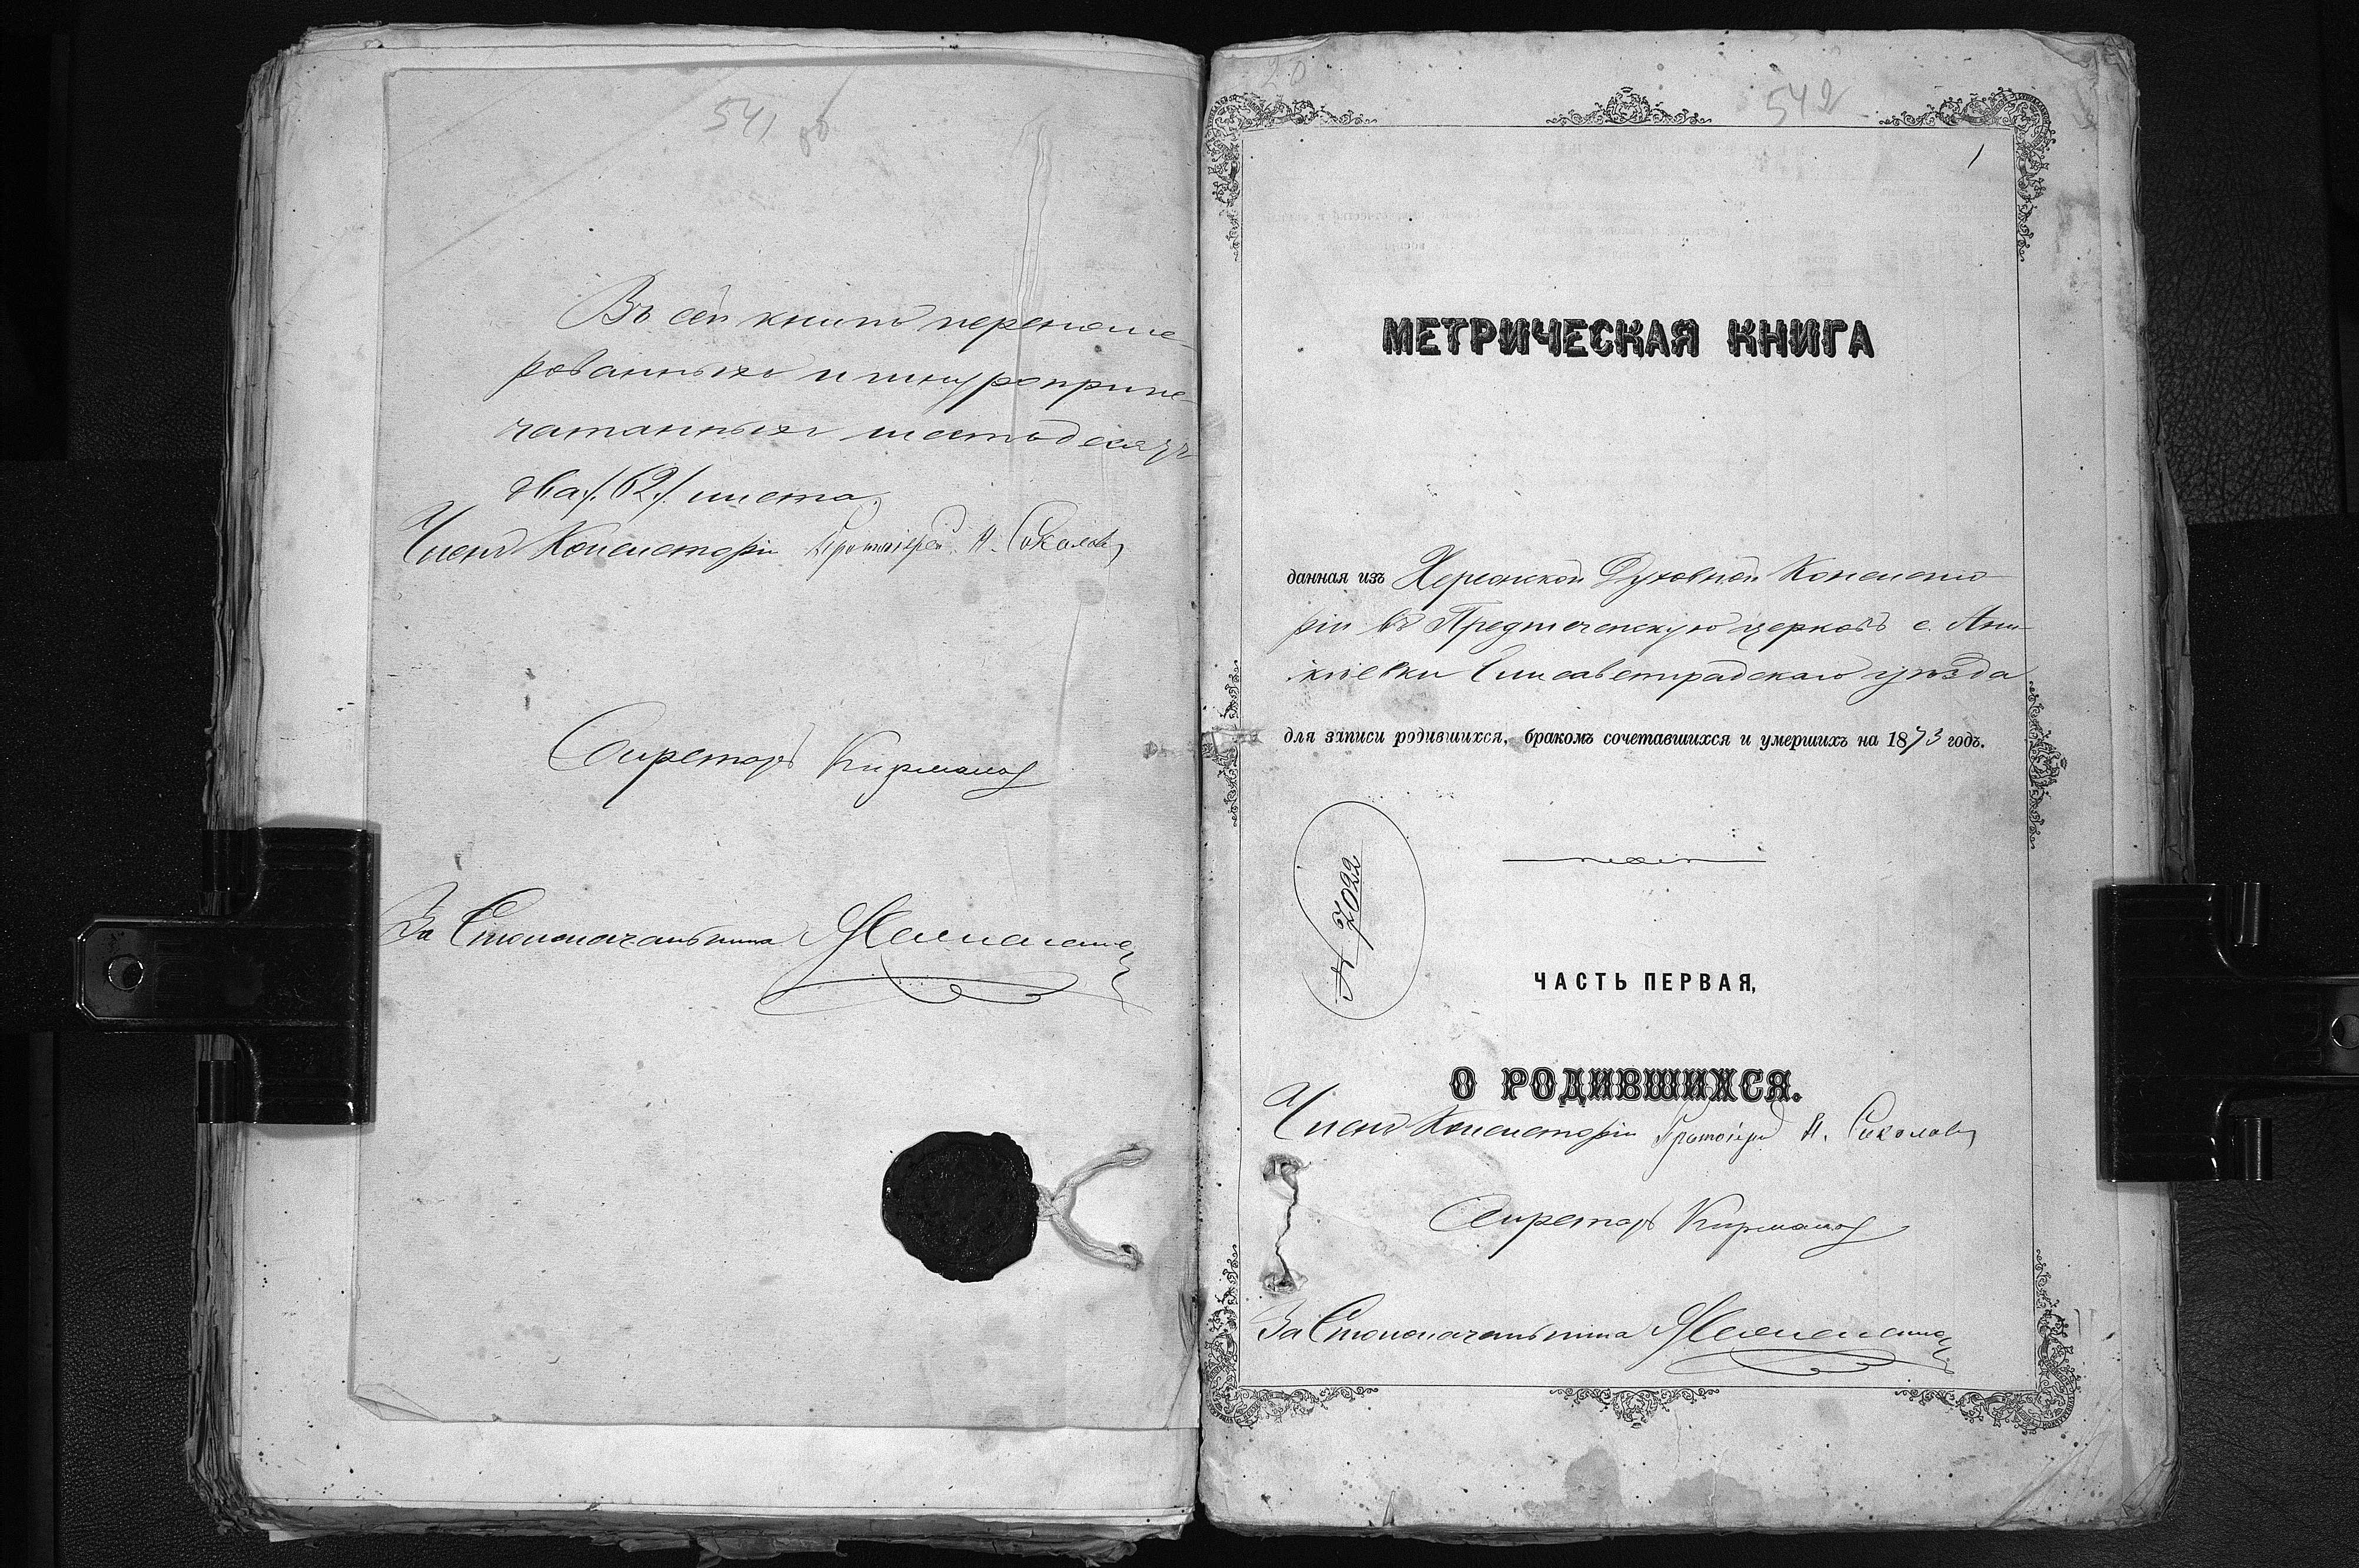 541 об
Въ сей книгѣ перенуме-
рованныхъ и шнуроприпе-
чатанныхъ шестьдесятъ
два /:62:/ листа.
Членъ Консисторіи Протоіерей Н. Соколовъ
Секретарь
За Столоначальника
20
542
1
МЕТРИЧЕСКАЯ КНИГА
данная изъ Херсонской Духовной Консисто-
ріи въ Предтеченскую церковь с. Ани-
кіевки Елисаветградскаго уѣзда
для записи родившихся, бракомъ сочетавшихся и умершихъ на 1873 годъ.
№ 7022
ЧАСТЬ ПЕРВАЯ,
О РОДИВШИХСЯ.
Членъ Консисторіи Протоіерей Н. Соколовъ
Секретарь
За Столоначальника